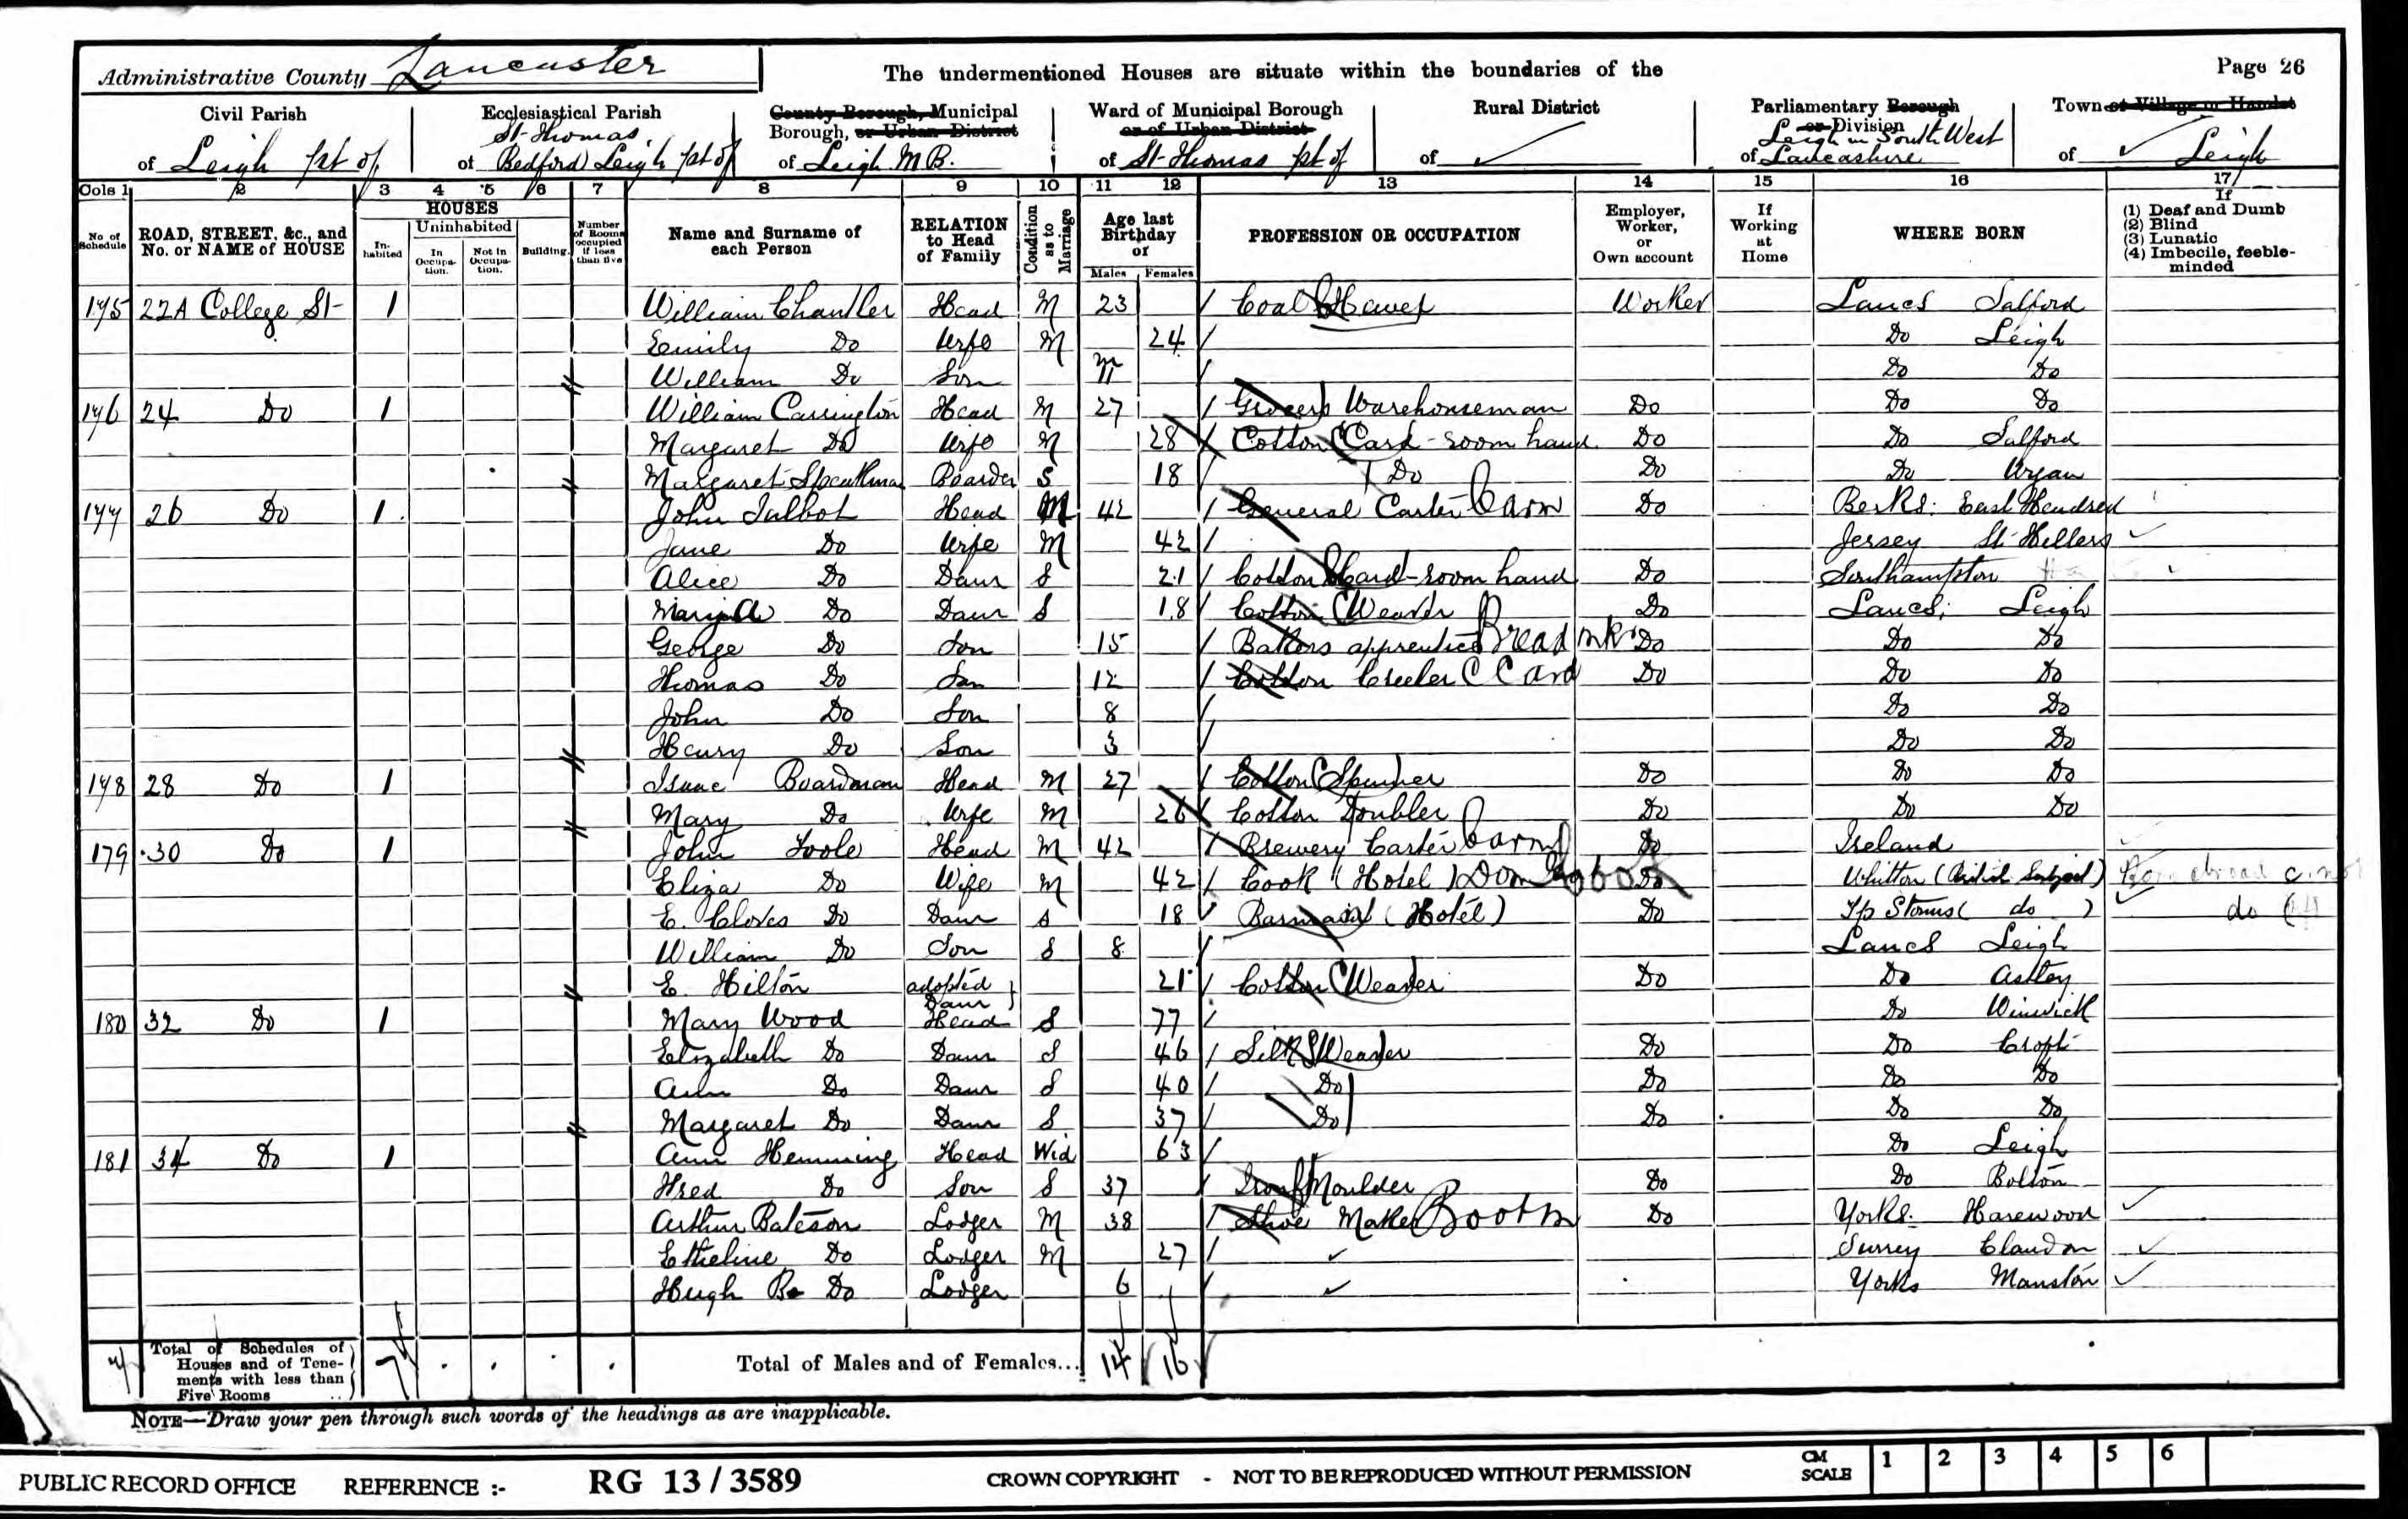 Administrative County Lancaster
The undermentioned Houses are situate within the boundaries of the
Page 26
Civil Parish of Leigh pt of
Ecclesiastical Parish of St Thomas, Bedford Leigh pt of
County Borough, Municipal Borough, or Urban District of Leigh M.B.
Ward of Municipal Borough or of Urban District of St Thomas pt of
Rural District of ✓
Parliamentary Borough or Division of Leigh in South West Lancashire
Town or Village or Hamlet of ✓ Leigh
Cols 1 2 3 4 5 6 7 8 9 10 11 12 13 14 15 16 17
No of Schedule
ROAD, STREET, &c., and No. or NAME of HOUSE
HOUSES
Inhabited
Uninhabited
In Occupation.
Not in Occupation.
Building.
Number of Rooms occupied if less than five
Name and Surname of each Person
RELATION to Head of Family
Condition as to Marriage
Age last Birthday of
Males Females
PROFESSION OR OCCUPATION
Employer, Worker, or Own account
If Working at Home
WHERE BORN
If
(1) Deaf and Dumb
(2) Blind
(3) Lunatic
(4) Imbecile, feeble-minded
175 22A College St 1 William Chandler Head M 23 Coal Hewer Worker Lancs Salford
Emily Do Wife M 24 Do Leigh
William Do Son Do Do
176 24 Do 1 William Carrington Head M 27 Grocers Warehouseman Do Do Do
Margaret Do Wife M 28 Cotton Card-room hand Do Do Salford
Margaret Speakman Boarder S 18 Do Do Do Wigan
177 26 Do 1 John Talbot Head M 42 General Carter Carm Do Berks: East Hendred
Jane Do Wife M 42 Jersey St Hellers ✓
Alice Do Daur S 21 Cotton Card-room hand Do Southampton
Mary A Do Daur S 18 Cotton Weaver Do Lancs; Leigh
George Do Son 15 Bakers apprentice Bread mkr Do Do Do
Thomas Do Son 12 Cotton Creeler C Card Do Do Do
John Do Son 8 Do Do
Henry Do Son 3 Do Do
178 28 Do 1 Isaac Boardman Head M 27 Cotton Spinner Do Do Do
Mary Do Wife M 26 Cotton Doubler Do Do Do
179 30 Do 1 John Toole Head M 42 Brewery Carter Carm Do Ireland
Eliza Do Wife M 42 Cook (Hotel) Dom Do Whitton (British Subject) abroad
E. Cloves Do Daur S 18 Barmaid (Hotel) Do (do) ✓ do
William Do Son S 8 Lancs Leigh
E. Hilton adopted Daur 21 Cotton Weaver Do Do Astley
180 32 Do 1 Mary Wood Head S 77 Do Winwick
Elizabeth Do Daur S 46 Silk Weaver Do Do Croft
Ann Do Daur S 40 Do Do Do Do
Margaret Do Daur S 37 Do Do Do Do
181 34 Do 1 Ann Hemming Head Wid 63 Do Leigh
Fred Do Son S 37 Iron Moulder Do Do Bolton
Arthur Bateson Lodger M 38 Shoe Maker Boot m Do Yorks. Harewood ✓
Etheline Do Lodger M 27 ✓ Surrey Clandon ✓
Hugh Do Lodger 6 ✓ Yorks Manston ✓
Total of Schedules of Houses and of Tenements with less than Five Rooms 7 7
Total of Males and of Females... 14 16
NOTE—Draw your pen through such words of the headings as are inapplicable.
PUBLIC RECORD OFFICE REFERENCE :- RG 13 / 3589 CROWN COPYRIGHT - NOT TO BE REPRODUCED WITHOUT PERMISSION CM SCALE 1 2 3 4 5 6